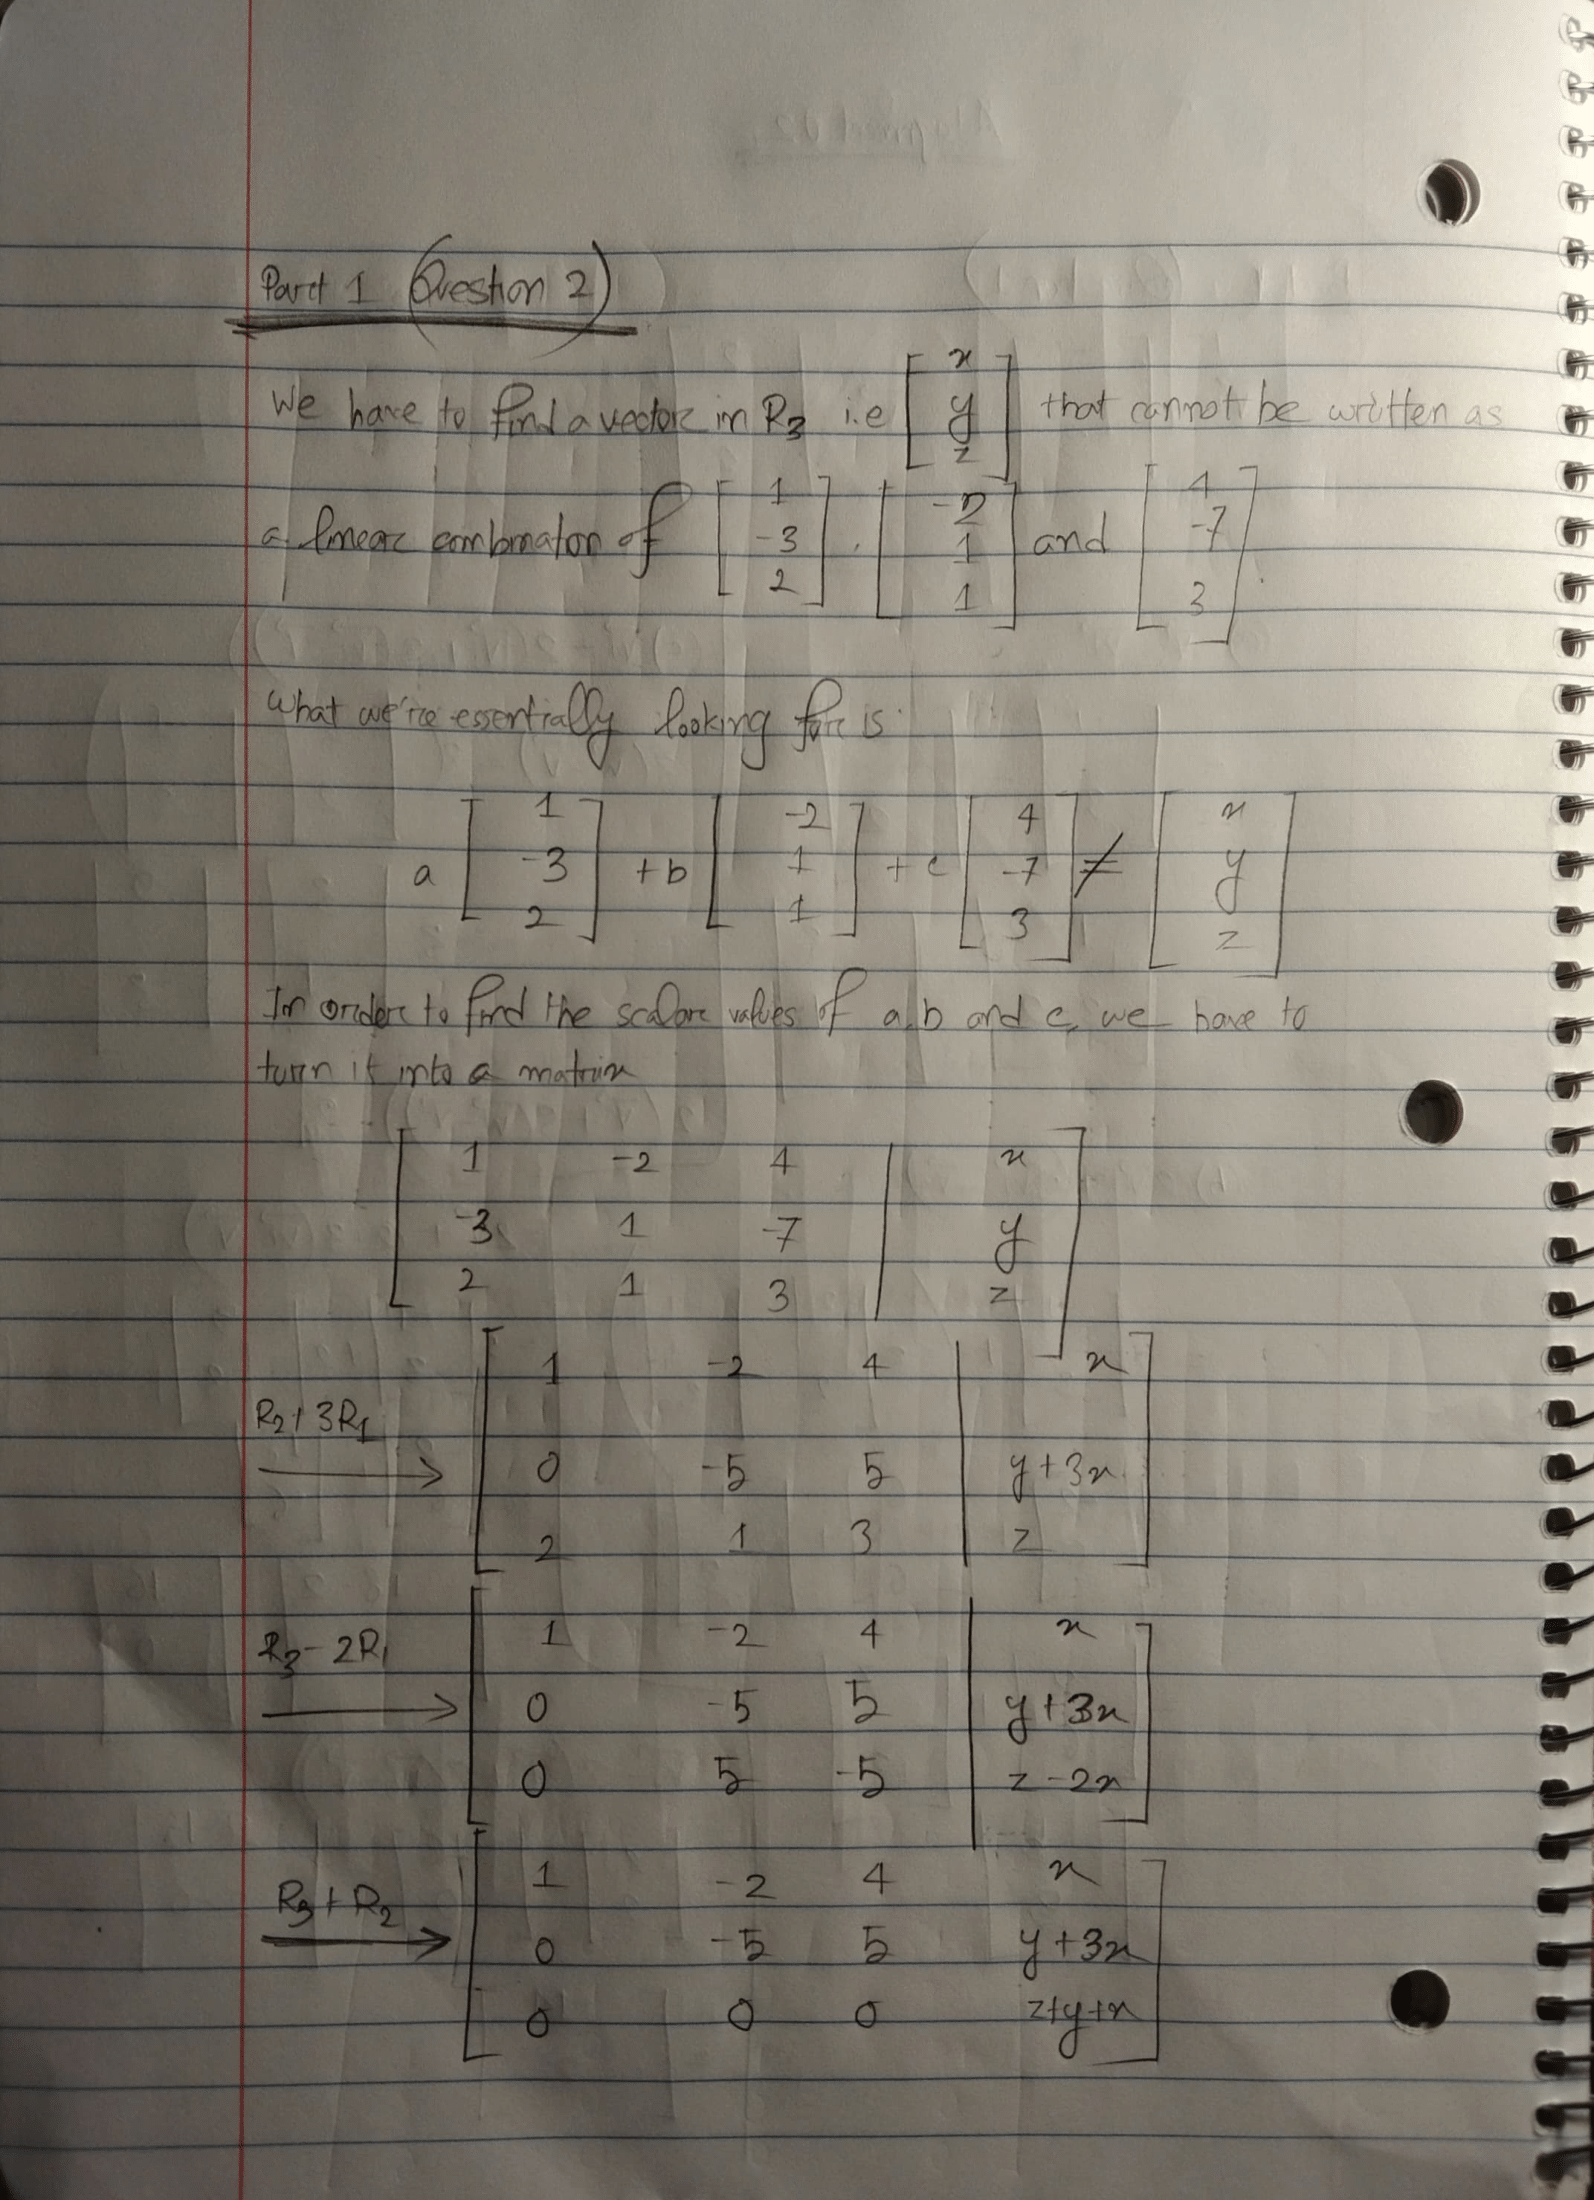 Part 1 (Question 2)
We have to find a vector in R3 i.e [x y z] that cannot be written as
a linear combinaton of [1 -3 2], [-2 1 1] and [4 -7 3].
What we're essentially looking for is
a [1 -3 2] + b [-2 1 1] + c [4 -7 3] ≠ [x y z]
In order to find the scalar values of a, b and c, we have to
turn it into a matrix
1 -2 4 | x
-3 1 -7 | y
2 1 3 | z
1 -2 4 | x
R2 + 3R1
0 -5 5 | y+3x
2 1 3 | z
1 -2 4 | x
R3 - 2R1
0 -5 5 | y+3x
0 5 -5 | z-2x
1 -2 4 x
R3 + R2
0 -5 5 y+3x
0 0 0 z+y+x